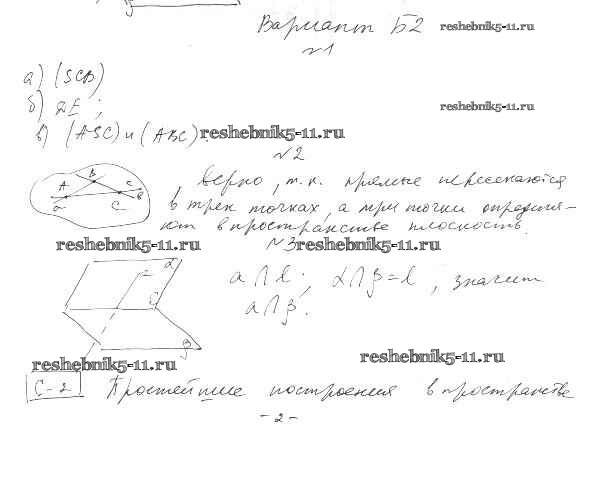 Вариант Б2 reshebnik5-11.ru
№1
а) (SCB)
б) DE; reshebnik5-11.ru
в) (ASC) и (ABC). reshebnik5-11.ru
№2
A B c
a C b
, верно, т.к. прямые пересекаются
в трех точках, а три точки определя-
ют в пространстве плоскость.
reshebnik5-11.ru №3 reshebnik5-11.ru
α
a ∩ l; α ∩ β = l, значит
a ∩ β.
β
reshebnik5-11.ru reshebnik5-11.ru
С-2 Простейшие построения в пространстве
- 2 -